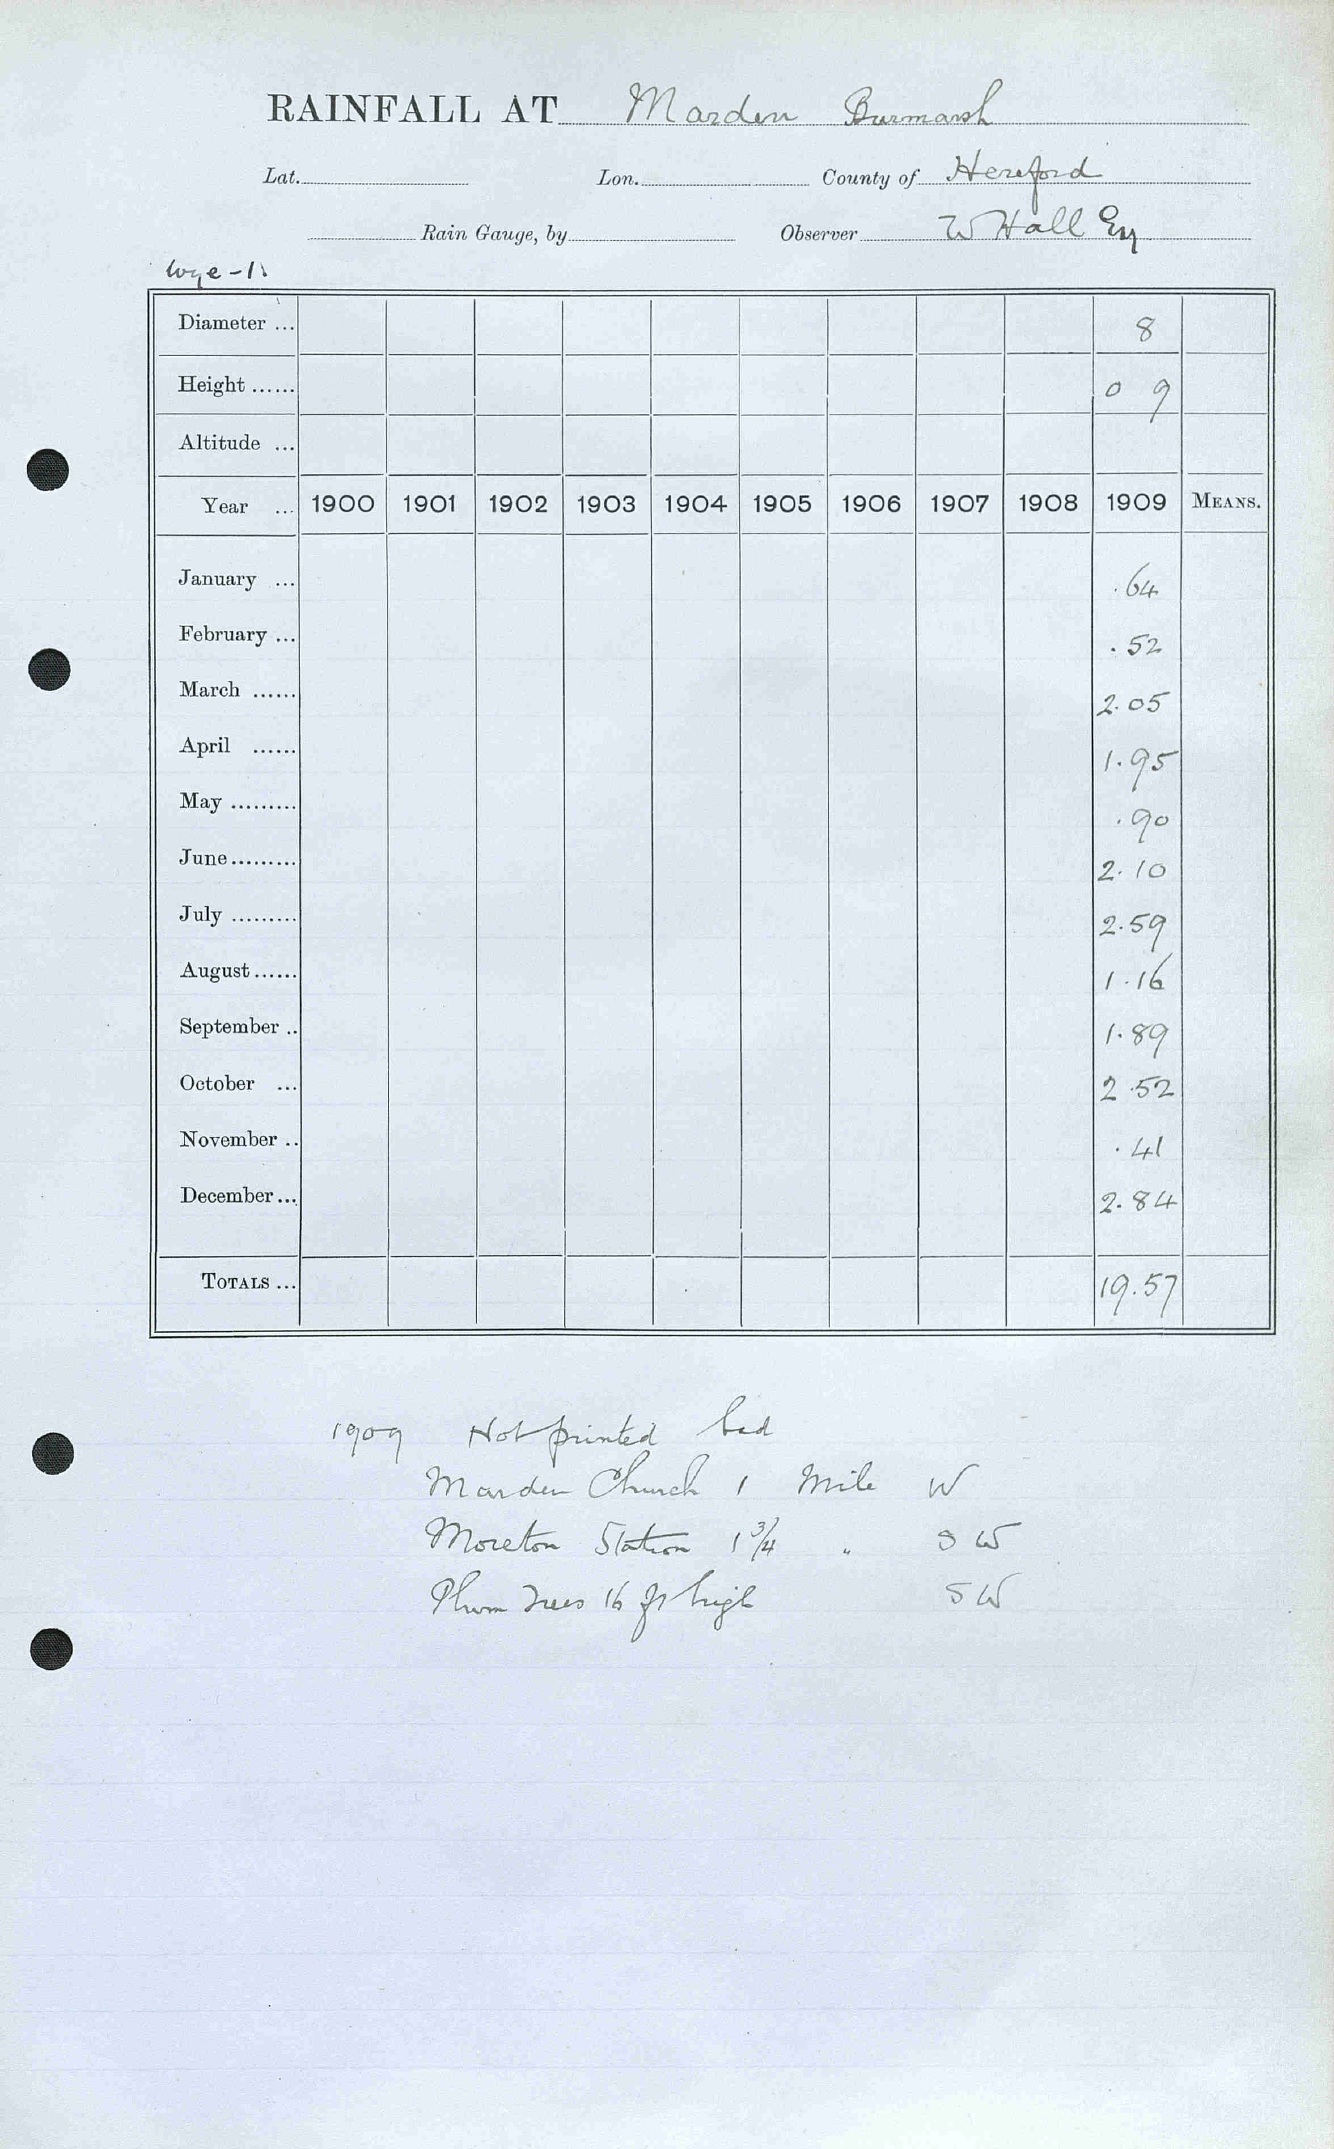 RAINFALL AT Marden Burmarsh
Lat. Lon. County of Hereford
Rain Gauge, by Observer W Hall Esq
Wye - 1
Diameter ... 8
Height ...... 0 9
Altitude ...
Year ... 1900 1901 1902 1903 1904 1905 1906 1907 1908 1909 MEANS.
January ... .64
February ... .52
March ...... 2.05
April ...... 1.95
May ......... .90
June ......... 2.10
July ......... 2.59
August ...... 1.16
September .. 1.89
October ... 2.52
November .. .41
December ... 2.84
TOTALS ... 19.57
1909 Not printed bad
Marden Church 1 Mile W
Moreton Station 1 3/4 " S W
Plum Trees 16 ft high S W